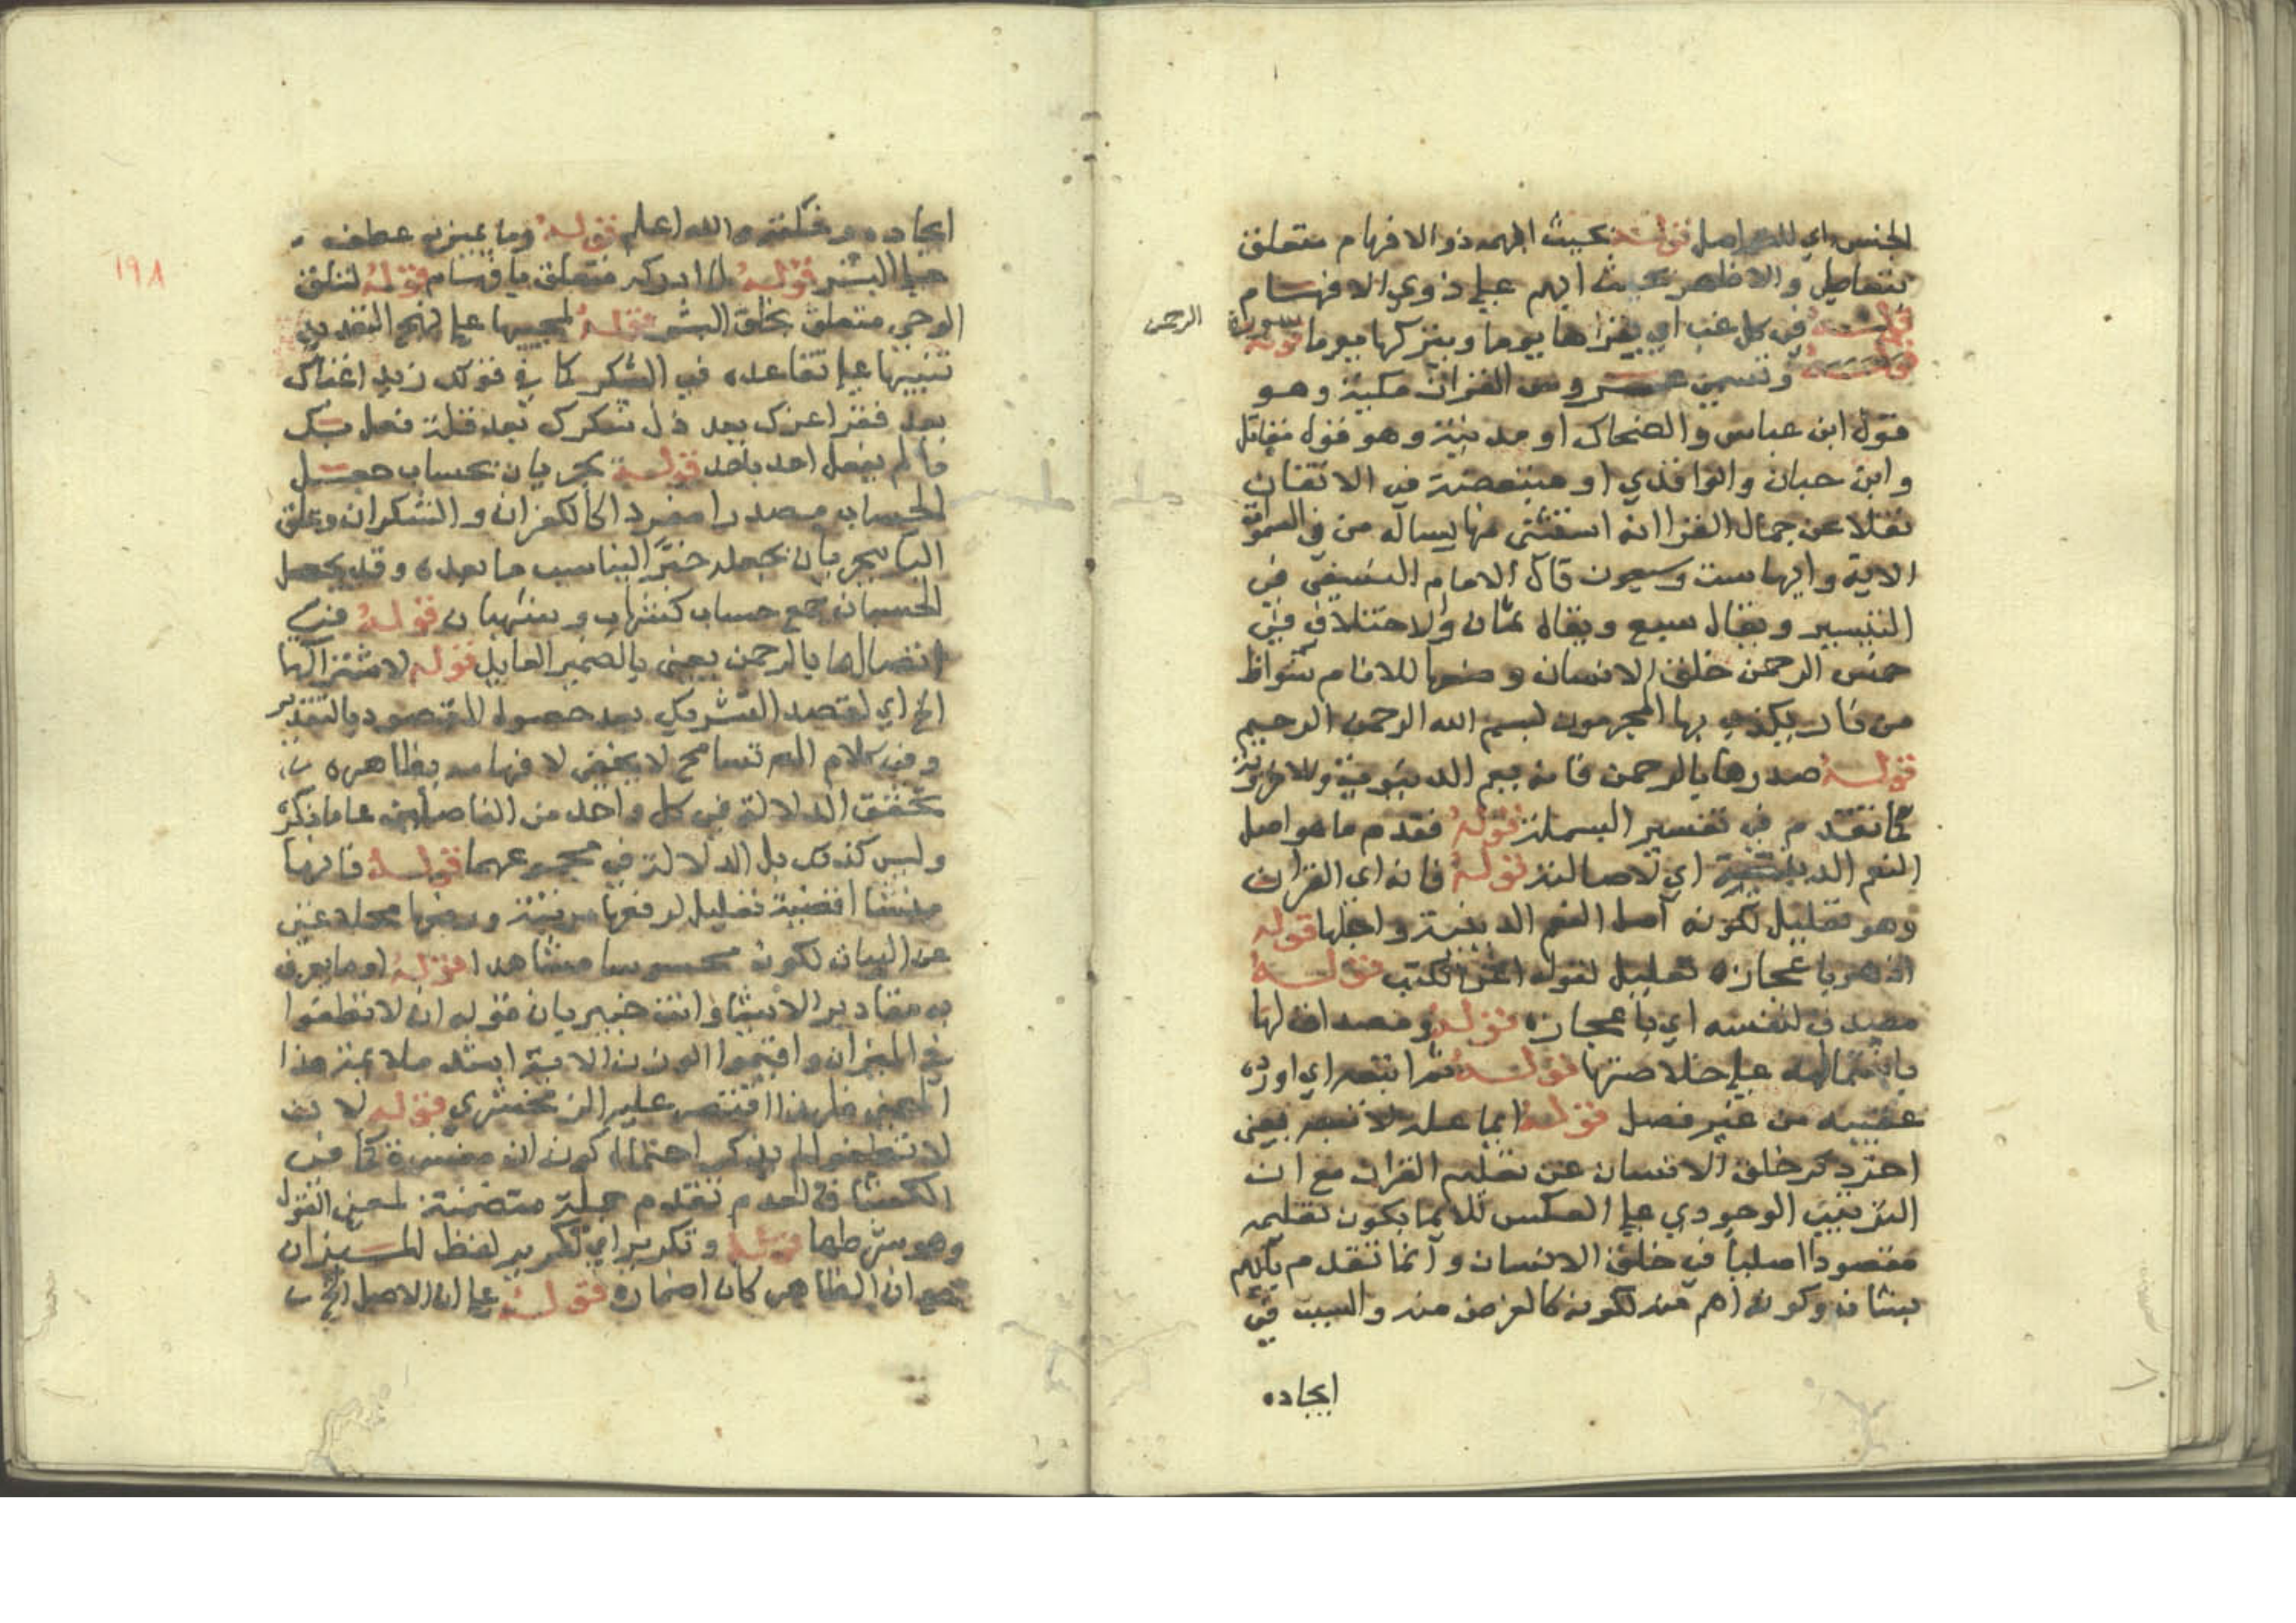 الجنس اي للتواصل قوله بحيث ابهمه ذو الافهام متعلق
بتعاطي والاظهر بحيث ابهم علي ذوي الافهام
في كل غب اي يقراها يوما ويتركها يوما قوله سورة الرحمن
وتسمي عروس القران مكية وهو
قول ابن عباس والضحاك او مدنية وهو قول مقاتل
وابن حبان والواقدي او متبعضة في الاتقان
نقلا عن جمال القرا انه استثني منها يساله من في السموات
الاية وايها ست وسبعون قال الامام النسفي في
التيسير ويقال سبع ويقال ثمان والاختلاف في
خمس الرحمن خلق الانسان وضعها للانام شواظ
من نار يكذب بها المجرمون بسم الله الرحمن الرحيم
قوله صدرها بالرحمن فانه يعم الدنيوية والاخروية
كما تقدم في تفسير البسملة قوله فقدم ما هو اصل
النعم الدينية اي لاصالته قوله فانه اي القران
وهو تعليل لكونه اصل النعم الدينية واجلها قوله
اذ هو باعجازه تعليل لقوله اعز الكتب قوله
مصدق لنفسه اي باعجازه قوله ومصداق لها
باشتماله علي خلاصتها قوله ثم اتبعه اي اورده
عقيبه من غير فصل قوله ايما علة لاتبعه يعني
اخر ذكر خلق الانسان عن تعليم القران مع ان
الترتيب الوجودي علي العكس للايما بكون تعليمه
مقصودا اصليا في خلق الانسان وانما تقدم
بشانه وكونه اهم منه لكونه كالغرض منه والسبب في
ايجاده
١٩٨
ايجاده وخلقته والله اعلم قوله وما تميز به عطف
علي البشر قوله لما ادركه متعلق بافهام قوله لتلقي
الوحي متعلق بخلق البشر قوله لمجييها علي نهج التعديد
تنبيها علي تقاعده في الشكر كما في قولك زيد اغناك
بعد فقر اعزك بعد ذل كثرك بعد قلة فعل بك
ما لم يفعل احد باحد قوله يجريان بحساب جعل
الحسبان مصدرا مفردا كالكفران والشكران وعلق
البا بيجريان بجعله خبرا ليناسب ما بعده وقد يجعل
الحسبان جمع حساب كشهاب وشهبان قوله في
اتصالها بالرحمن يعني بالضمير العايد قوله لاشتراكها
الخ اي لقصد التشريك بعد حصول المقصود بالتقدير
وفي كلام المص تسامح لا يخفي لافهامه بظاهره
تحقق الدلالة في كل واحد من الفاصلين عما ذكره
وليس كذلك بل الدلالة في مجموعهما قوله فانها
منشا اقضية تعليل لرفعها مرتبة ورفعها محلا غني
عن البيان لكونه محسوسا مشاهدا قوله او ما يعرف
به مقادير الاشيا وانت خبير بان قوله ان لا تطغوا
في الميزان واقيموا الوزن الاية اشد ملايمة بهذا
المعني فلهذا اقتصر عليه الزمخشري قوله لان
لا تطغوا لم يذكر احتمال كون ان مفسرة كما في
الكشاف لعدم تقدم جملة متضمنة لمعني القول
وهو شرطها قوله وتكريره اي تكرير لفظ الميزان
مع ان الظاهر كان اضماره قوله علي ان الاصل الخ